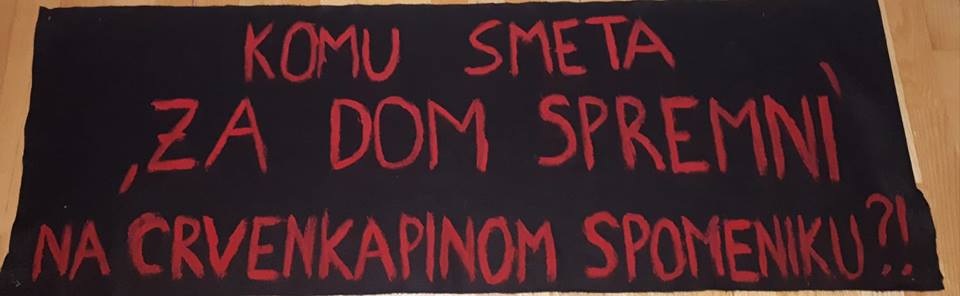 KOMU SMETA
‚ZA DOM SPREMNI‘
NA CRVENKAPINOM SPOMENIKU?!